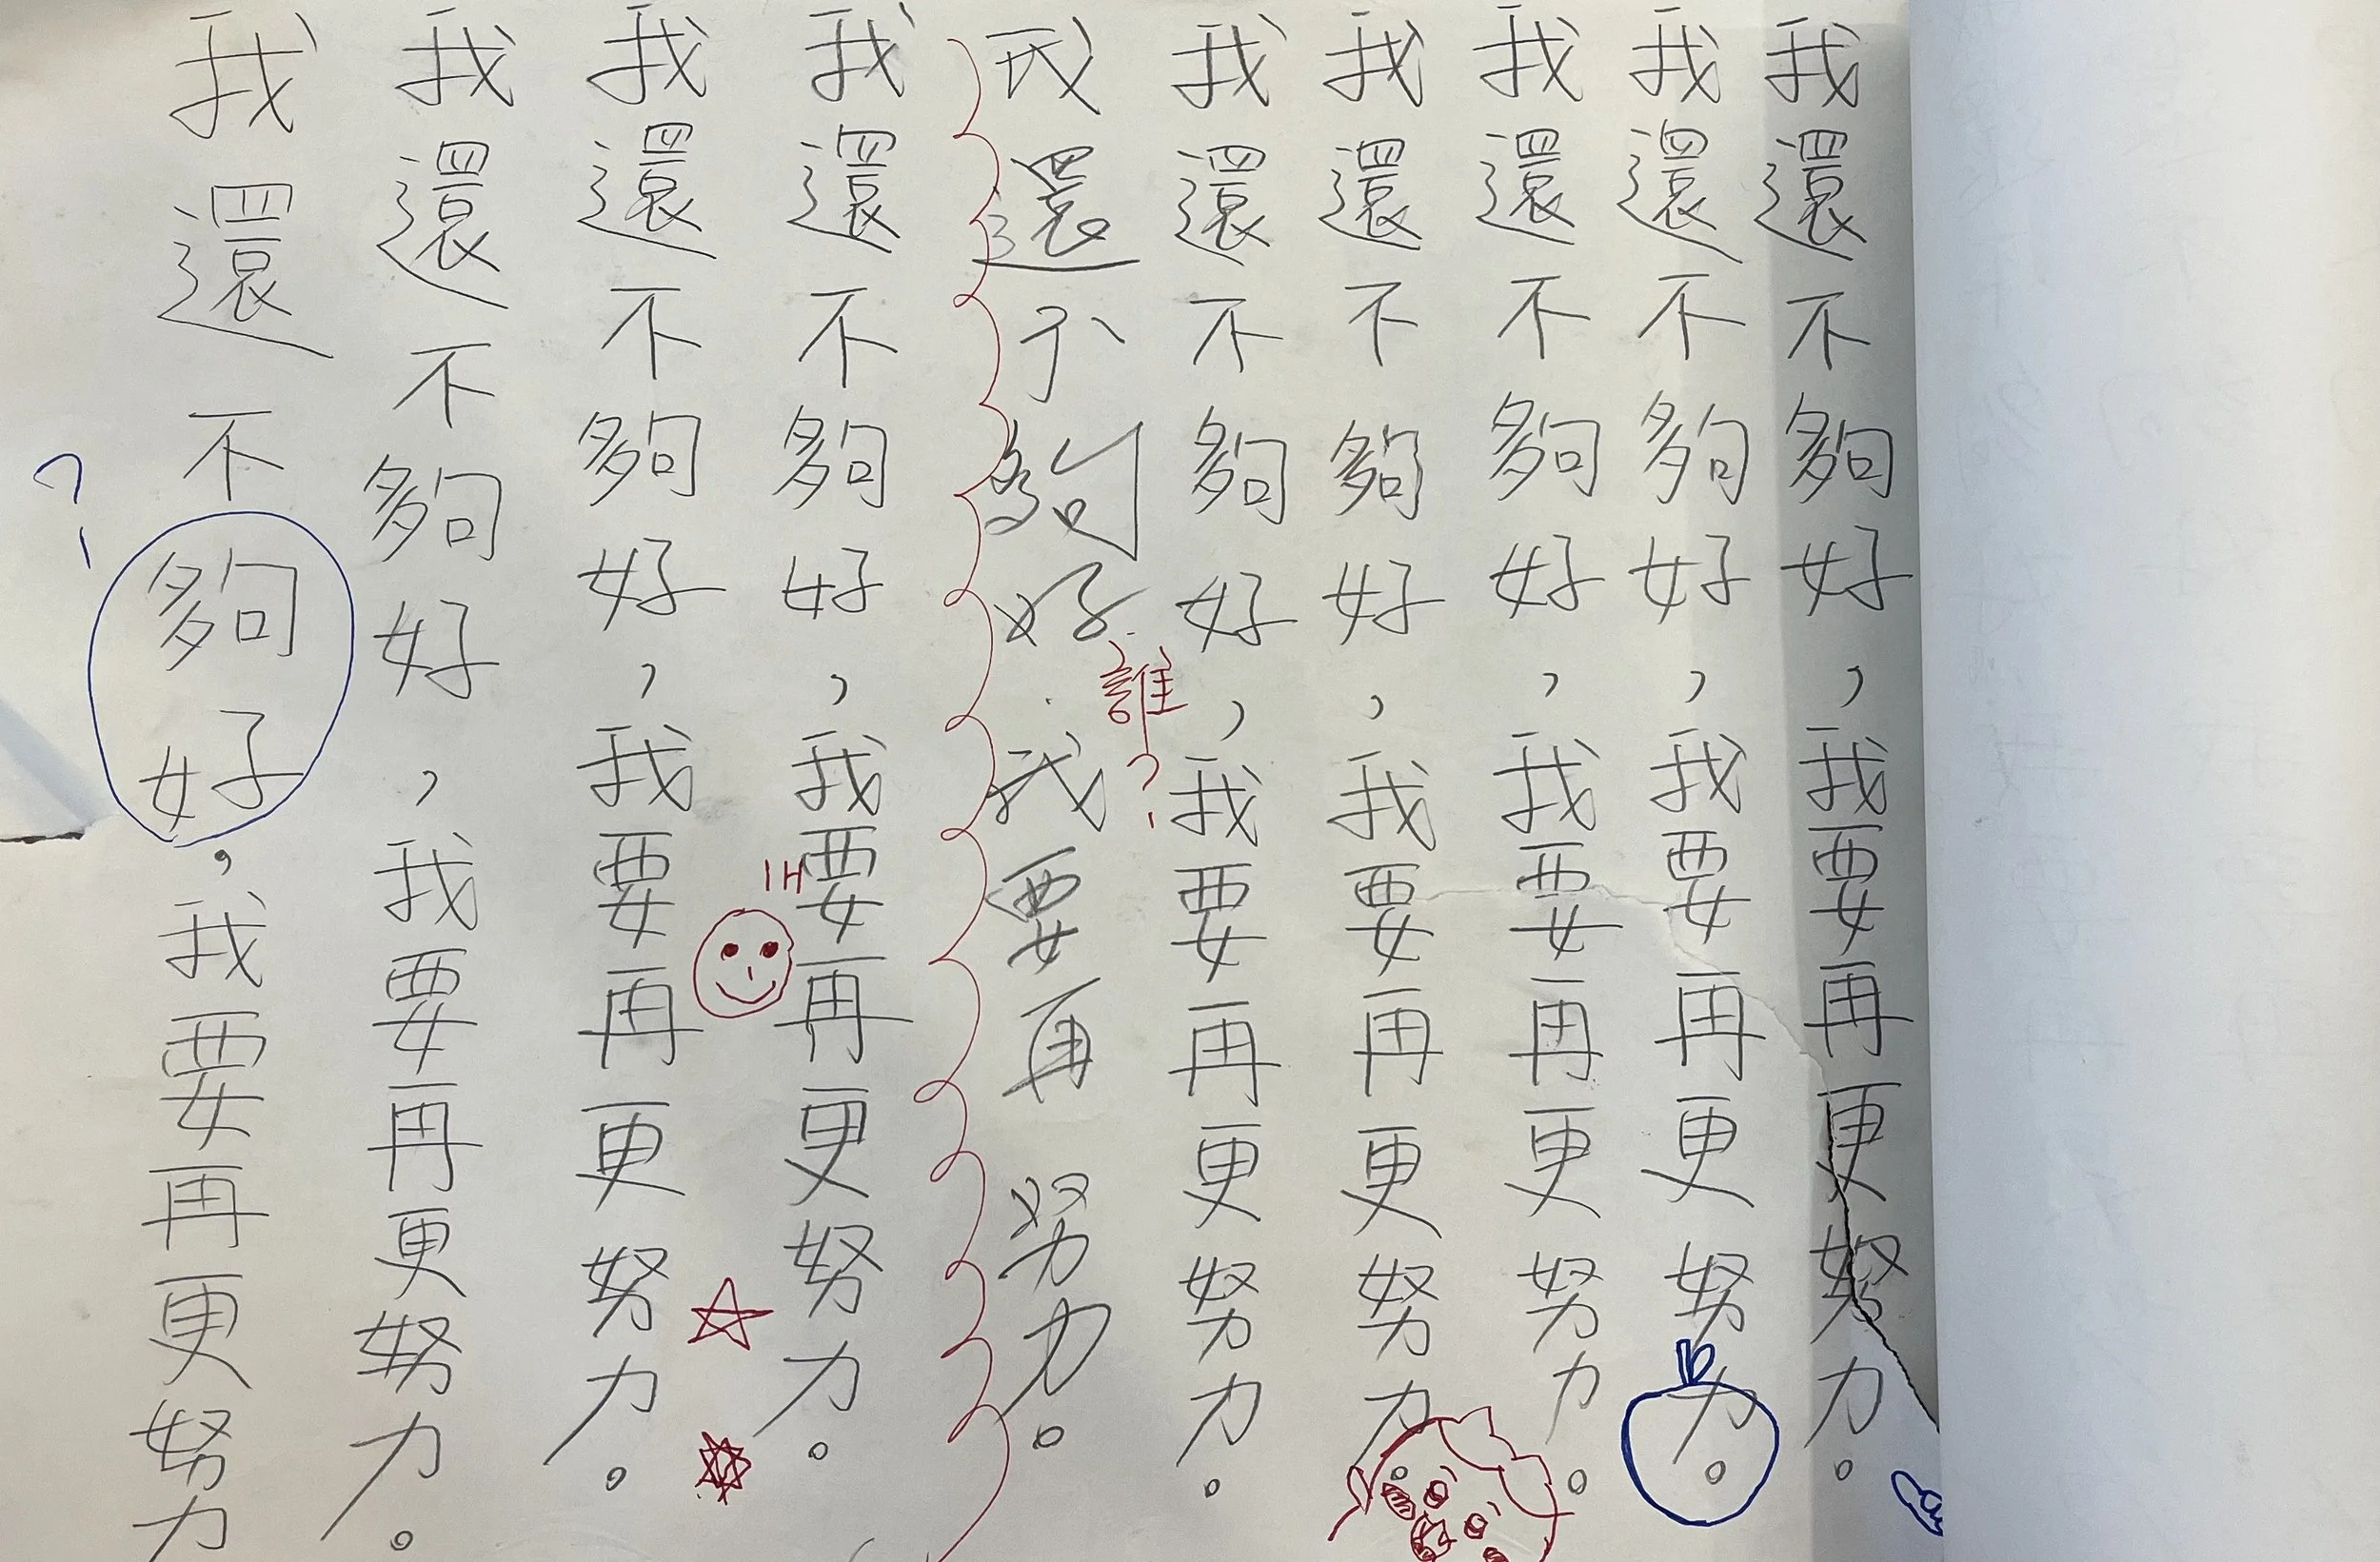 我還不夠好，我要再更努力。
我還不夠好，我要再更努力。
我還不夠好，我要再更努力。
我還不夠好，我要再更努力。
我還不夠好，我要再更努力。
誰？
我還不夠好．我要再努力。
我還不夠好，我要再更努力。
IH
我還不夠好，我要再更努力。
我還不夠好，我要再更努力。
我還不夠好，我要再更努力
？